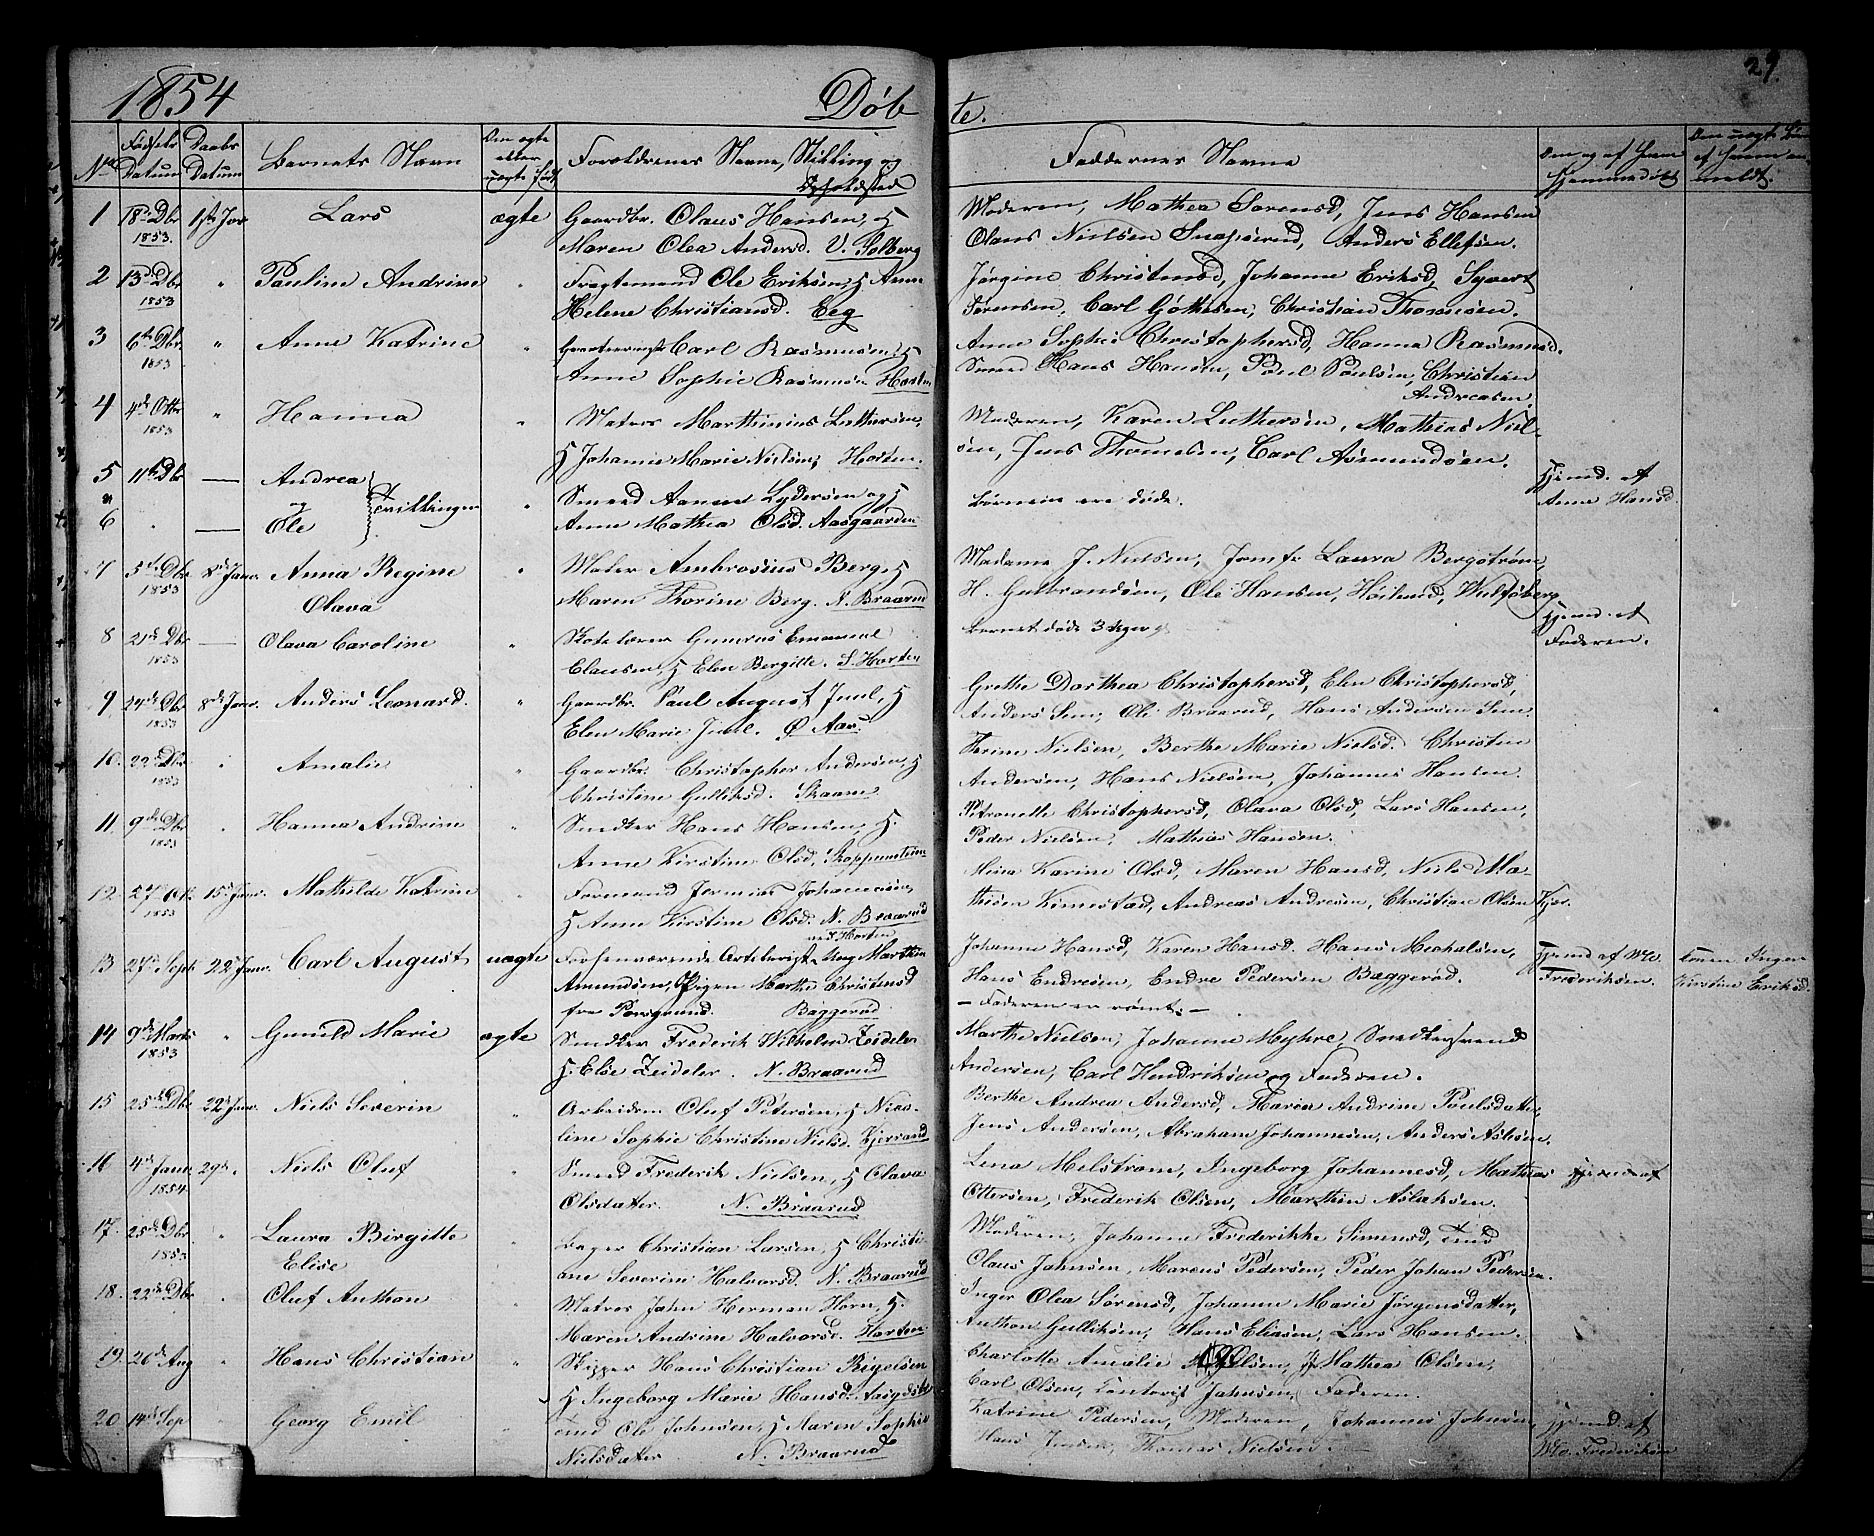 1854 Døbte. 29.
No Fødsels Datum Daabs Datum Barnets Navn Om ægte eller uægte født Forældrenes Navne, Stilling og Opholdsted Faddernes Navne Om og af hvem hjemmedøbt Om uægte af hvem anmeldt.
1 18de Dbr 1ste Jan Lars ægte Gaardbr. Olaus Hansen, H
1853. Maren Olea Andersd. V. Solberg
Moderen, Mathea Sørensd, Jens Hansen
Olaus Nielsen Snapsrud, Anders Ellefsen.
2 13de Dbr " Pauline Andrine " Fragtemand Ole Eriksen, H Anne
1853 Helene Christiansd. Eeg
Jørgine Christensd, Johanne Eriksd, Syvert
Sørensen, Carl Gøthesen, Christian Thomesen.
3 6te Dbr. " Anna Katrine " Carl Rasmusen, H
1853 Anne Sophie Rasmusen Horten
Anne Sophie Christophersd, Hanna Rasmusd.
Smed Hans Hansen, Poul Poulsen, Christian
Andreasen.
4 4de Otbr " Hanna " Matros Marthinius Luthersen,
1853 H Johanne Marie Nielsen, Horten.
Moderen, Karen Luthersen, Mathias Niel-
sen, Jens Thomesen, Carl Asmundsen.
5 11te Dbr — Andrea Tvillinger
og og " Smed Aanen Lydersen og H
6 " — Ole Anne Mathea Olsd. Aasgaarden
Børnene ere døde.
Hjemd. af
Anne Hansd
7 5te Dbr 8de Janr. Anna Regine " Maler Ambrosius Berg, H
1853 Olava Maren Thorine Berg. N. Braarud
Madame J. Nielsen, Jomfr Laura Bergstrøm,
H. Gulbrandsen, Ole Hansen, Høilund, Wulfsberg
8 21de Dbr — Olava Caroline " Skolelærer Gunerus Emanuel
1853 Clausen, H Elen Bergitte. S. Horten
Barnet døde 3 Uger gl.
Hjemd. af
Faderen.
9 24de Dbr 8de Janr. Anders Leonard. " Gaardbr. Paul August Juul, H
1853 Elen Marie Juul. Ø Aas.
Grethe Dorthea Christophersd, Elen Christophersd,
Anders Sem, Ole Braarud, Hans Andersen Sem.
10 22de Dbr " Amalie " Gaardbr. Christopher Andersen, H
1853 Christine Gulliksd. Skaane
Nielsen, Berthe Marie Nielsd. Christen
Andersen, Hans Nielsen, Johannes Hansen.
11. 9de Dbr " Hanna Andrine " Snedker Hans Hansen, H.
1853 Anne Kirstine Olsd,
Petronelle Christophersd, Olava Olsd, Lars Hansen,
Peder Nielsen, Mathias Hansen.
12 27de 15de Janr. Mathilde Katrine " Formand Jermias Johannesen,
1853 H Anne Kirstine Olsd. N. Braarud
ved Horten
Karine Olsd, Maren Hansd, Niels Ma-
thisen Kimestad, Andreas Andresen, Christian Olsen
Hjr.
13 27de Sept 22de Janr. Carl August uægte Forhenværende Marthin
Amundsen, Pigen Marthe Christensd
fra Porsgrund. Baggerød
Johanne Hansd, Karen Hansd. Hans Michalsen,
Hans Endresen, Endre Pedersen Baggerød.
— Faderen er rømt. —
Hjemd af Md.
Frederiksen.
Konen Inger
Kirstine Eriksd.
14 9de Marts " Gunild Marie ægte Snedker Frederik Wilhelm Zeideler
1853 H. Else Zeideler. N. Braarud
Marthe Nielsen, Johanne Myhre, Snedkersvend
Andersen, Carl Hendriksen og Faderen.
15 25de Dbr 22de Janr. Niels Severin " Arbeidsm Oluf Petersen, H Nico-
line Sophie Christine Nielsd. Kjersand
Berthe Andrea Andersd, Maren Andrine Poulsdatter,
Jens Andersen, Abraham Johannesen, Anders Aslesen.
16 4de Janr 29de. Niels Oluf " Smed Frederik Nielsen, H Olava
1854 Olsdatter. N. Braarud
Lena Melstrøm, Ingeborg Johannesd, Mathias
Ottersen, Frederik Olsen, Marthin Aslaksen.
Hjemd af
17. 25de Dbr " Laura Birgitte " Bager Christian Larsen, H Christi-
1853. Elise ane Severine Halvorsd. N. Braarud
Moderen, Johanne Frederikke Simensd, Knud
Olaus Jahnsen, Marcus Pedersen, Peder Johan Pedersen.
18. 22de Dbr " Oluf Anthon " Matros John Herman Horn, H.
Maren Andrine Halvorsd. Horten
Inger Olea Sørensd, Johanne Marie Jørgensdatter,
Anthon Gulliksen, Hans Eliasen, Lars Hansen.
19. 26de Aug " Hans Christian " Skipper Hans Christian Rigelsen
H Ingeborg Marie Hansd.
Charlotte Amalie Mathea Olsen,
Carl Olsen, Contorist Jahnsen, Faderen.
20 14de Sep Georg Emil Ole Johnsen, H Maren Sophie
Nielsdatter N. Braarud
Katrine Pedersen, Moderen, Johannes Johnsen,
Hans Jensen, Thomas Nielsen. —
Hjemd. af
Md. Frederiksen